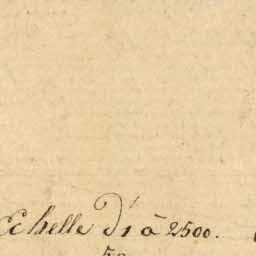 Echelle d'1 à 2500.
50